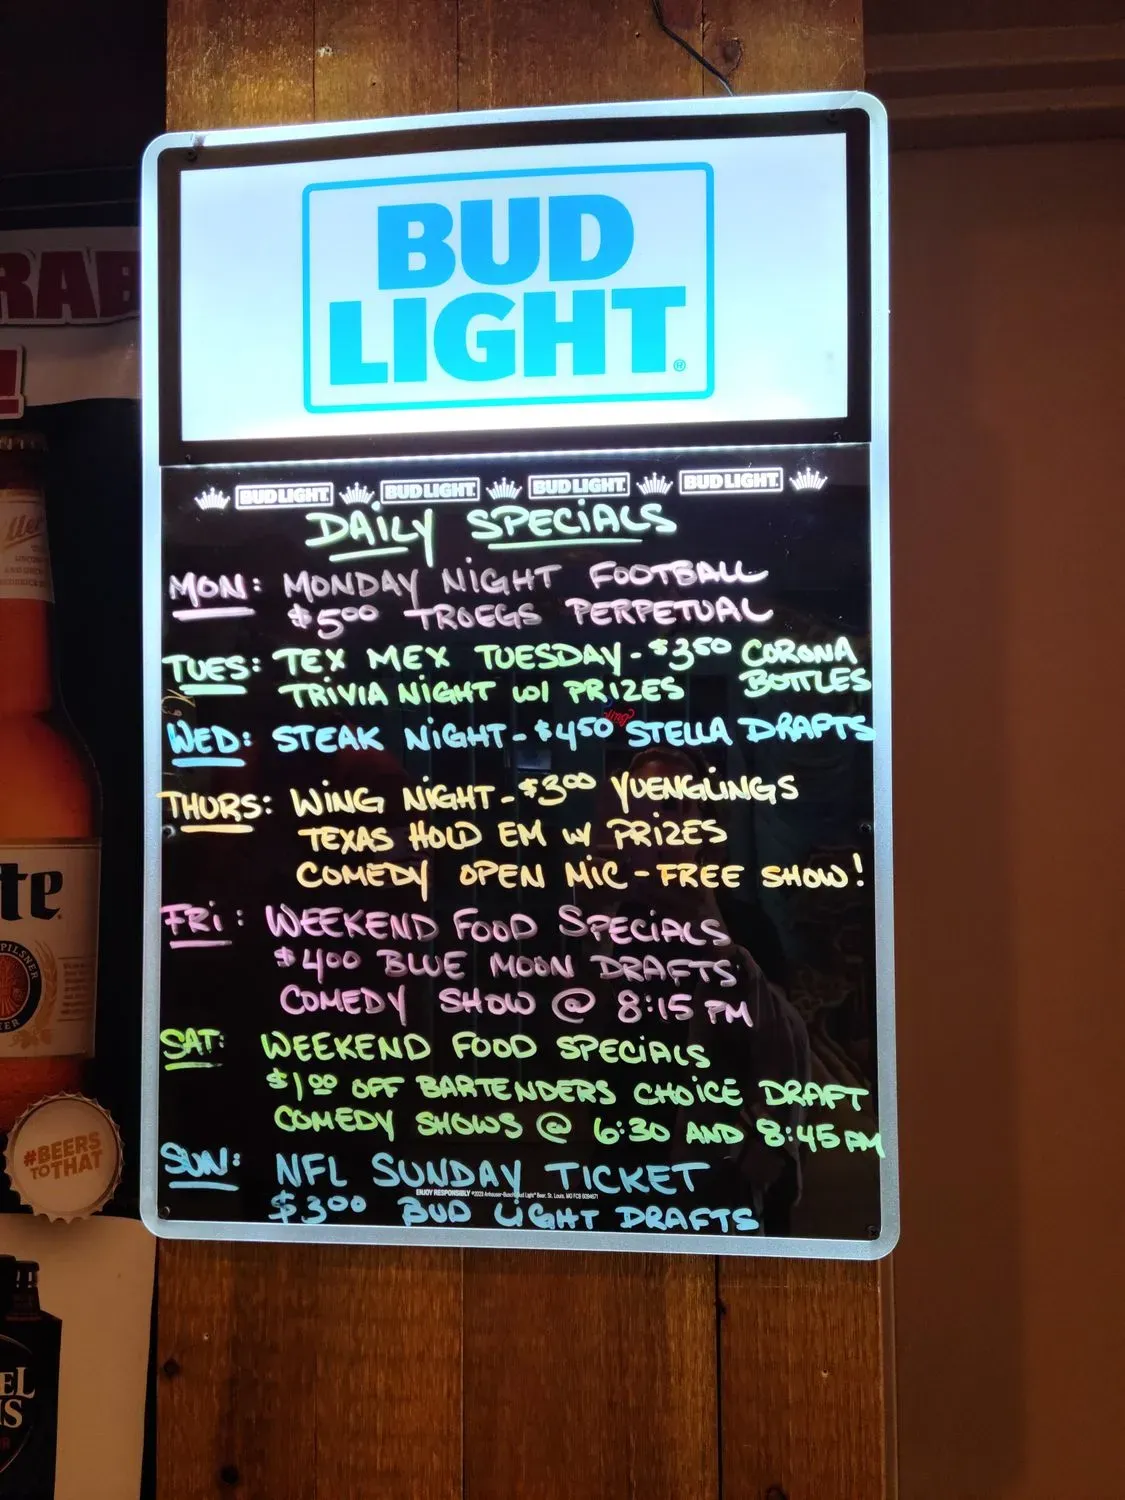 BUD
LIGHT.
BUD LIGHT. BUD LIGHT. BUD LIGHT. BUD LIGHT.
DAILY SPECIALS
MON: MONDAY NIGHT FOOTBALL
$5.00 TROEGS PERPETUAL
TUES: TEX MEX TUESDAY - $3.50 CORONA
BOTTLES
TRIVIA NIGHT W/ PRIZES
WED: STEAK NIGHT - $4.50 STELLA DRAFTS
THURS: WING NIGHT - $3.00 YUENGLINGS
TEXAS HOLD EM W/ PRIZES
COMEDY OPEN MIC - FREE SHOW!
FRI: WEEKEND FOOD SPECIALS
$4.00 BLUE MOON DRAFTS
COMEDY SHOW @ 8:15 PM
SAT: WEEKEND FOOD SPECIALS
$1.00 OFF BARTENDERS CHOICE DRAFT
COMEDY SHOWS @ 6:30 AND 8:45 PM
SUN: NFL SUNDAY TICKET
ENJOY RESPONSIBLY
$3.00 BUD LIGHT DRAFTS
RAB
te
PILSNER
#BEERS
TO THAT
EL